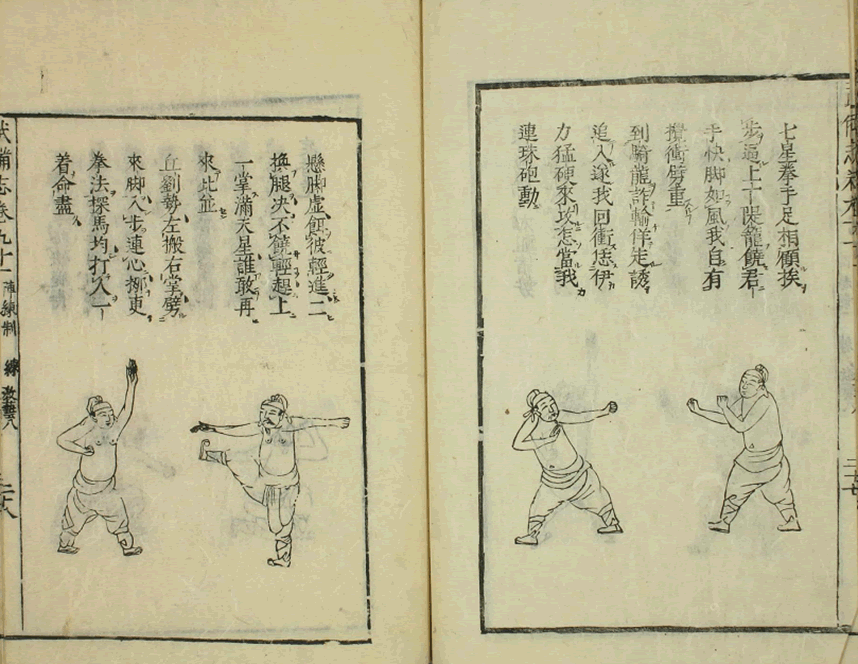 七星拳手足相顧挨
步逼上下隄籠饒君
手快脚如風我自有
攪衝劈重
到騎龍詐輸佯走誘
追入遂我回衝恁伊
力猛硬來攻怎當我
連珠砲動
懸脚虛餌彼輕進二
換腿決不饒輕趕上
一掌滿天星誰敢再
來比並
丘劉勢左搬右掌劈
來脚入步連心挪更
拳法探馬均打人一
着命盡
武備志卷九十一 陣練制 練